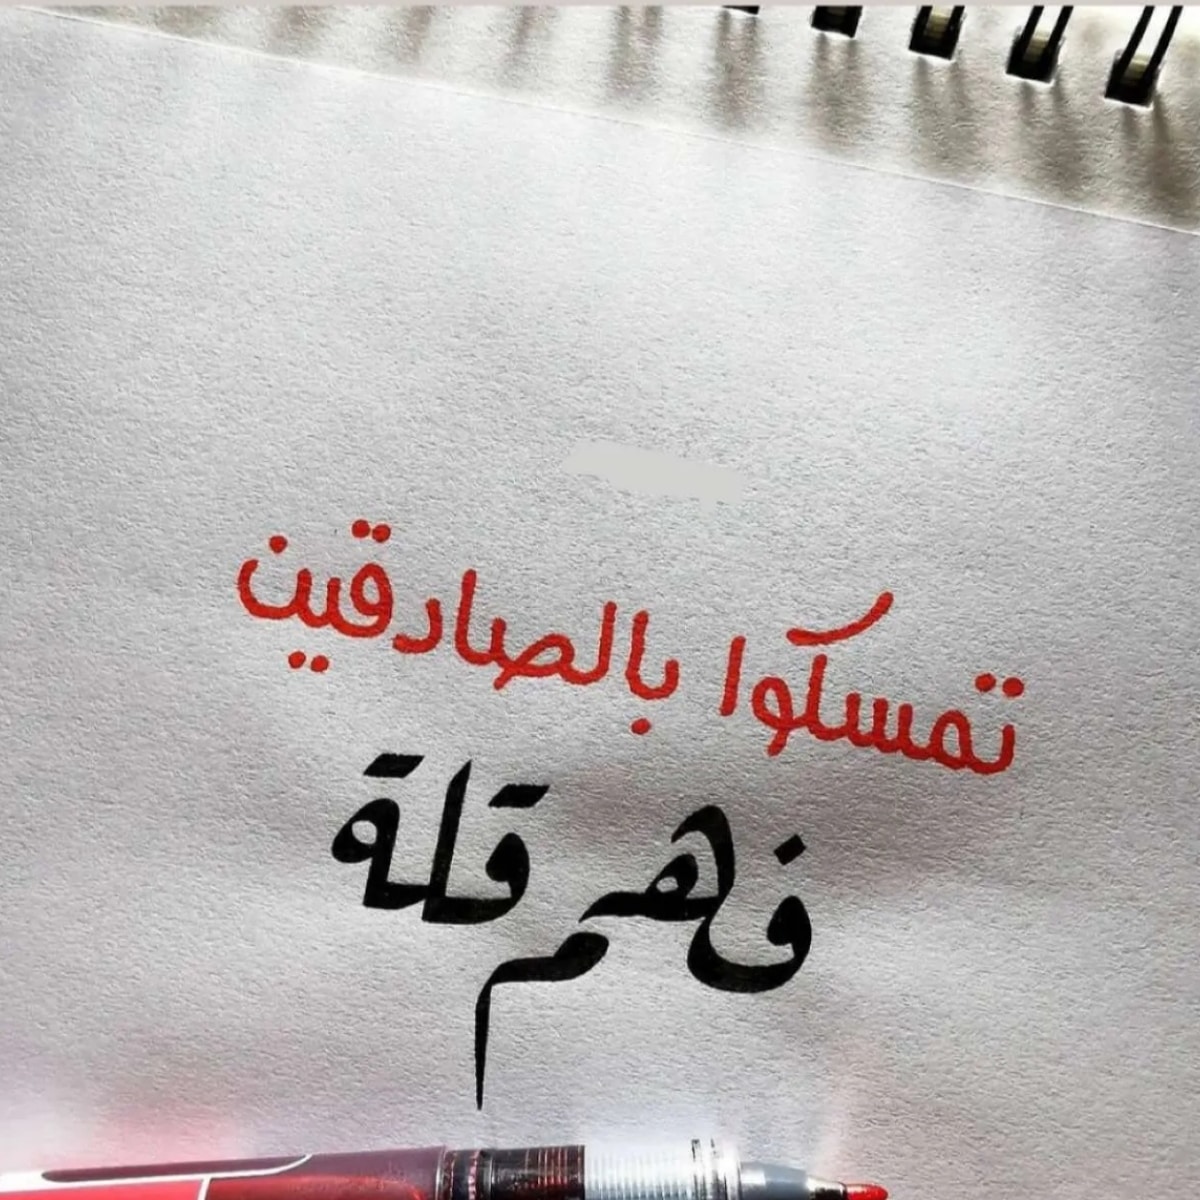 تمسكوا بالصادقين
فهم قلة